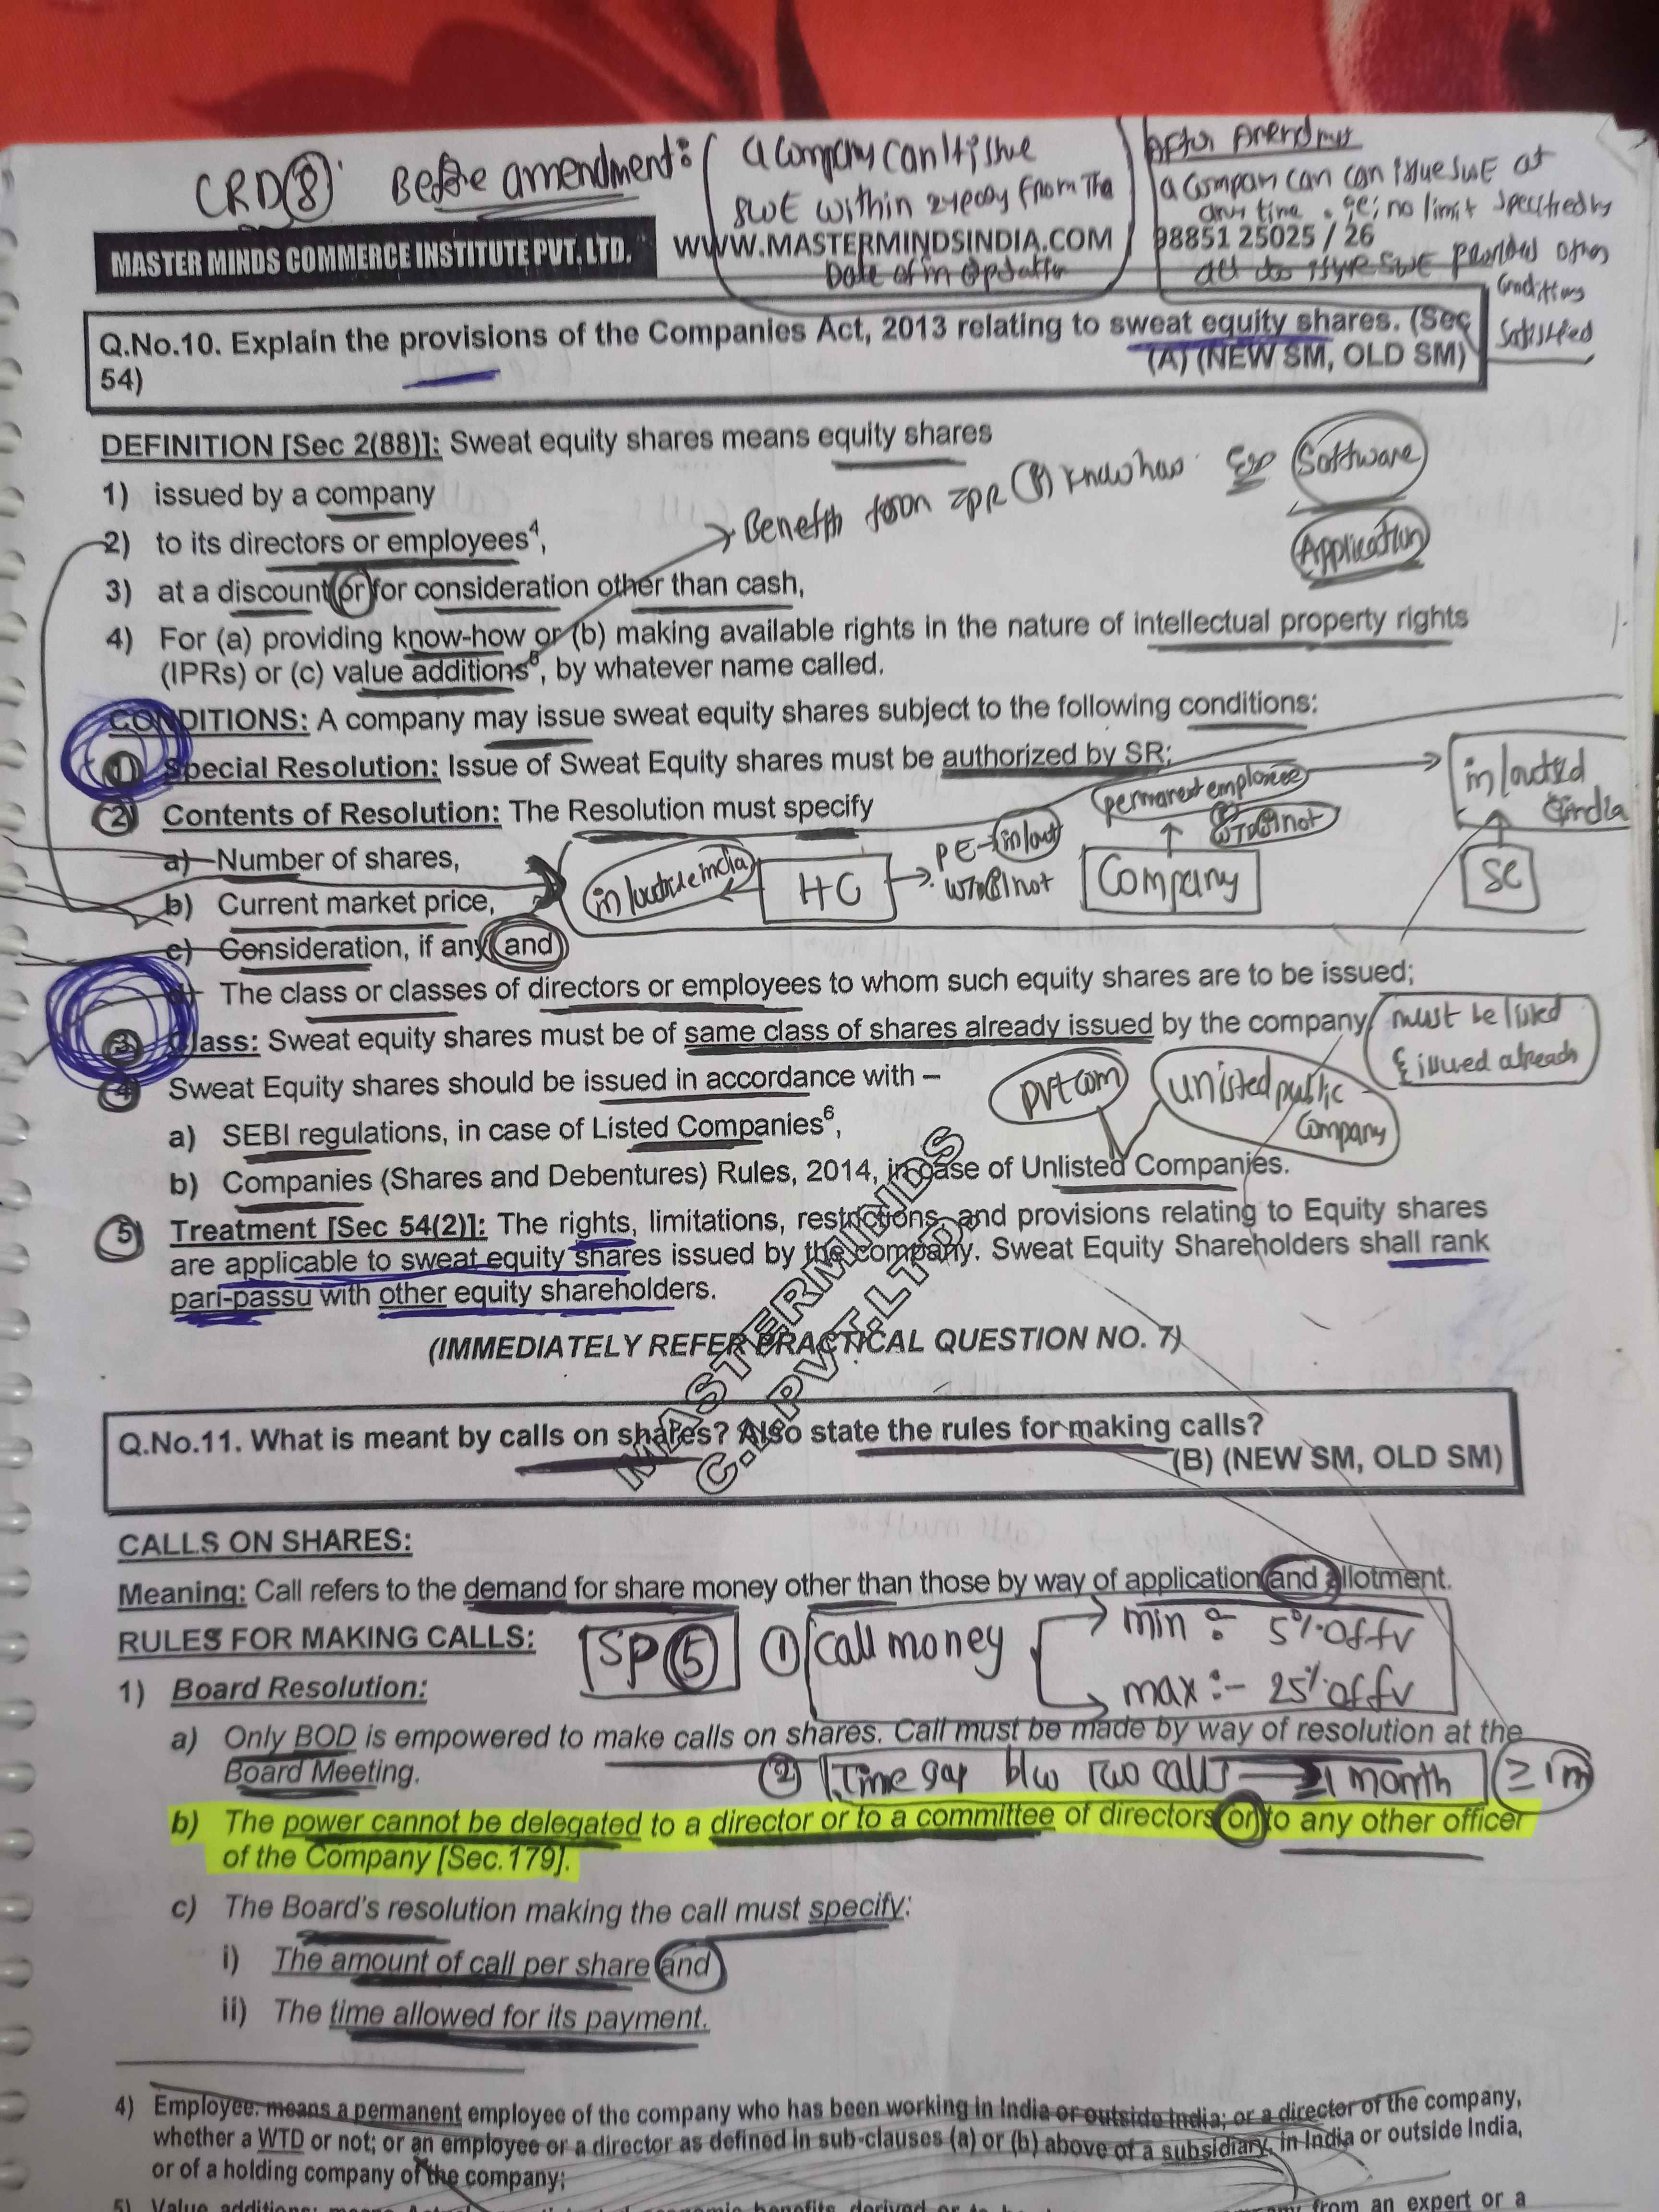 CRD(8)
Before amendment:
a company can't issue
SWE within
from the
After Amendment
a company can can issue SWE at
any time . ie; no limit specified by
provided other
conditions
satisfied
MASTER MINDS COMMERCE INSTITUTE PVT. LTD. WWW.MASTERMINDSINDIA.COM 98851 25025 / 26
Q.No.10. Explain the provisions of the Companies Act, 2013 relating to sweat equity shares. (Sec
54) (A) (NEW SM, OLD SM)
DEFINITION [Sec 2(88)]: Sweat equity shares means equity shares
1) issued by a company
2) to its directors or employees4,
3) at a discount or for consideration other than cash,
4) For (a) providing know-how or (b) making available rights in the nature of intellectual property rights
(IPRs) or (c) value additions5, by whatever name called.
Software
Application
CONDITIONS: A company may issue sweat equity shares subject to the following conditions:
1) Special Resolution: Issue of Sweat Equity shares must be authorized by SR;
2) Contents of Resolution: The Resolution must specify
a) Number of shares,
b) Current market price,
c) Consideration, if any and
d) The class or classes of directors or employees to whom such equity shares are to be issued;
in/outside india
HC
PE-in/out
permanent employee
Company
SC
3) Class: Sweat equity shares must be of same class of shares already issued by the company
must be listed
& issued already
4) Sweat Equity shares should be issued in accordance with –
a) SEBI regulations, in case of Listed Companies6,
b) Companies (Shares and Debentures) Rules, 2014, in case of Unlisted Companies.
pvt com
unlisted public
company
5) Treatment [Sec 54(2)]: The rights, limitations, restrictions, and provisions relating to Equity shares
are applicable to sweat equity shares issued by the company. Sweat Equity Shareholders shall rank
pari-passu with other equity shareholders.
MASTERMINDS
C.A PVT.LTD
(IMMEDIATELY REFER PRACTICAL QUESTION NO. 7)
Q.No.11. What is meant by calls on shares? Also state the rules for making calls?
(B) (NEW SM, OLD SM)
CALLS ON SHARES:
Meaning: Call refers to the demand for share money other than those by way of application and allotment.
RULES FOR MAKING CALLS:
SP(5)
(1) Call money
min :- 5% of fv
max :- 25% of fv
1) Board Resolution:
a) Only BOD is empowered to make calls on shares. Call must be made by way of resolution at the
Board Meeting.
(2) Time gap b/w two calls 1 month
≥ 1m
b) The power cannot be delegated to a director or to a committee of directors or to any other officer
of the Company [Sec.179].
c) The Board's resolution making the call must specify:
i) The amount of call per share and
ii) The time allowed for its payment.
4) Employee: means a permanent employee of the company who has been working in India or outside India; or a director of the company,
whether a WTD or not; or an employee or a director as defined in sub-clauses (a) or (b) above of a subsidiary, in India or outside India,
or of a holding company of the company;
from an expert or a